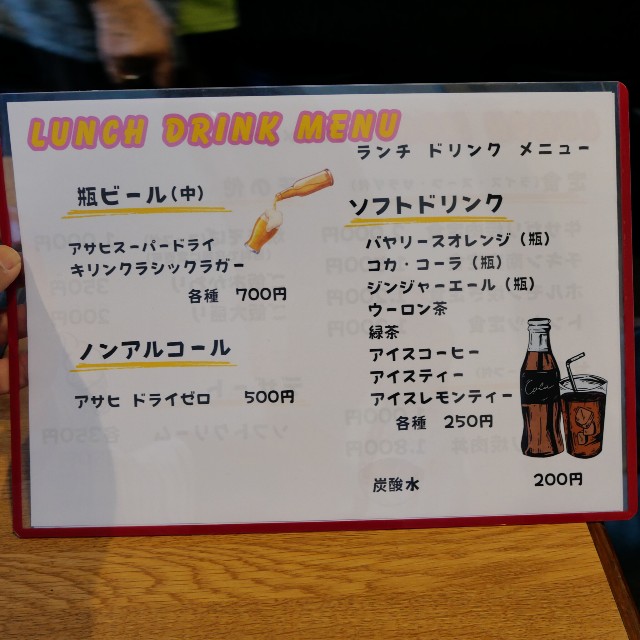 LUNCH DRINK MENU
ランチ ドリンク メニュー
瓶ビール(中)
アサヒスーパードライ
キリンクラシックラガー
各種 700円
ノンアルコール
アサヒ ドライゼロ 500円
ソフトドリンク
バヤリースオレンジ(瓶)
コカ・コーラ(瓶)
ジンジャーエール(瓶)
ウーロン茶
緑茶
アイスコーヒー
アイスティー
アイスレモンティー
各種 250円
Cola
炭酸水 200円